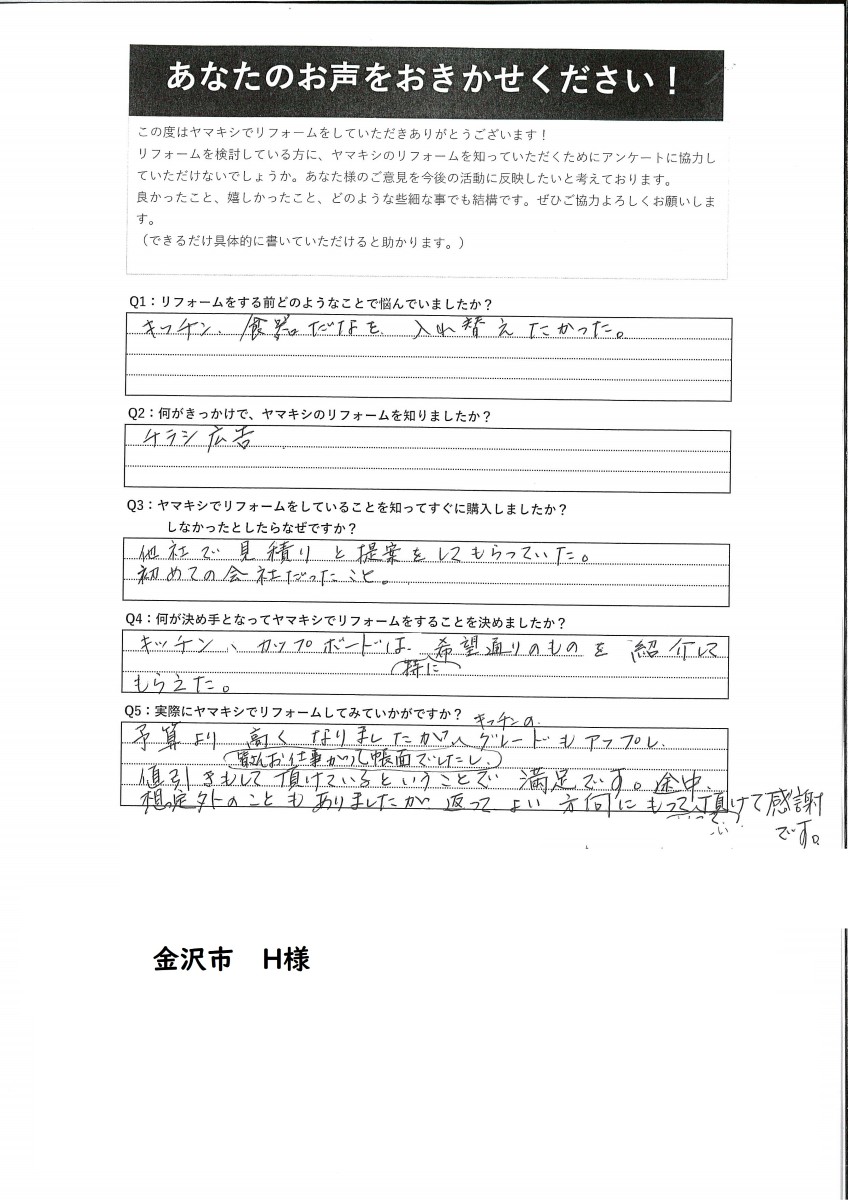 あなたのお声をおきかせください！
この度はヤマキシでリフォームをしていただきありがとうございます！
リフォームを検討している方に、ヤマキシのリフォームを知っていただくためにアンケートに協力し
ていただけないでしょうか。あなた様のご意見を今後の活動に反映したいと考えております。
良かったこと、嬉しかったこと、どのような些細な事でも結構です。ぜひご協力よろしくお願いしま
す。
（できるだけ具体的に書いていただけると助かります。）
Q1：リフォームをする前どのようなことで悩んでいましたか？
キッチン、食器だなを、入れ替えたかった。
Q2：何がきっかけで、ヤマキシのリフォームを知りましたか？
チラシ広告
Q3：ヤマキシでリフォームをしていることを知ってすぐに購入しましたか？
しなかったとしたらなぜですか？
他社で見積りと提案をしてもらっていた。
初めての会社だったこと。
Q4：何が決め手となってヤマキシでリフォームをすることを決めましたか？
キッチン、カップボードは、希望通りのものを紹介して
特に
もらえた。
Q5：実際にヤマキシでリフォームしてみていかがですか？
キッチンの
予算より高くなりましたが、グレードもアップし、
皆さんお仕事がって帳面でいたし、
値引きもして頂けているということで満足です。途中、
想定外のこともありましたが返ってよい方向にもって頂けて感謝
です。
金沢市　H様